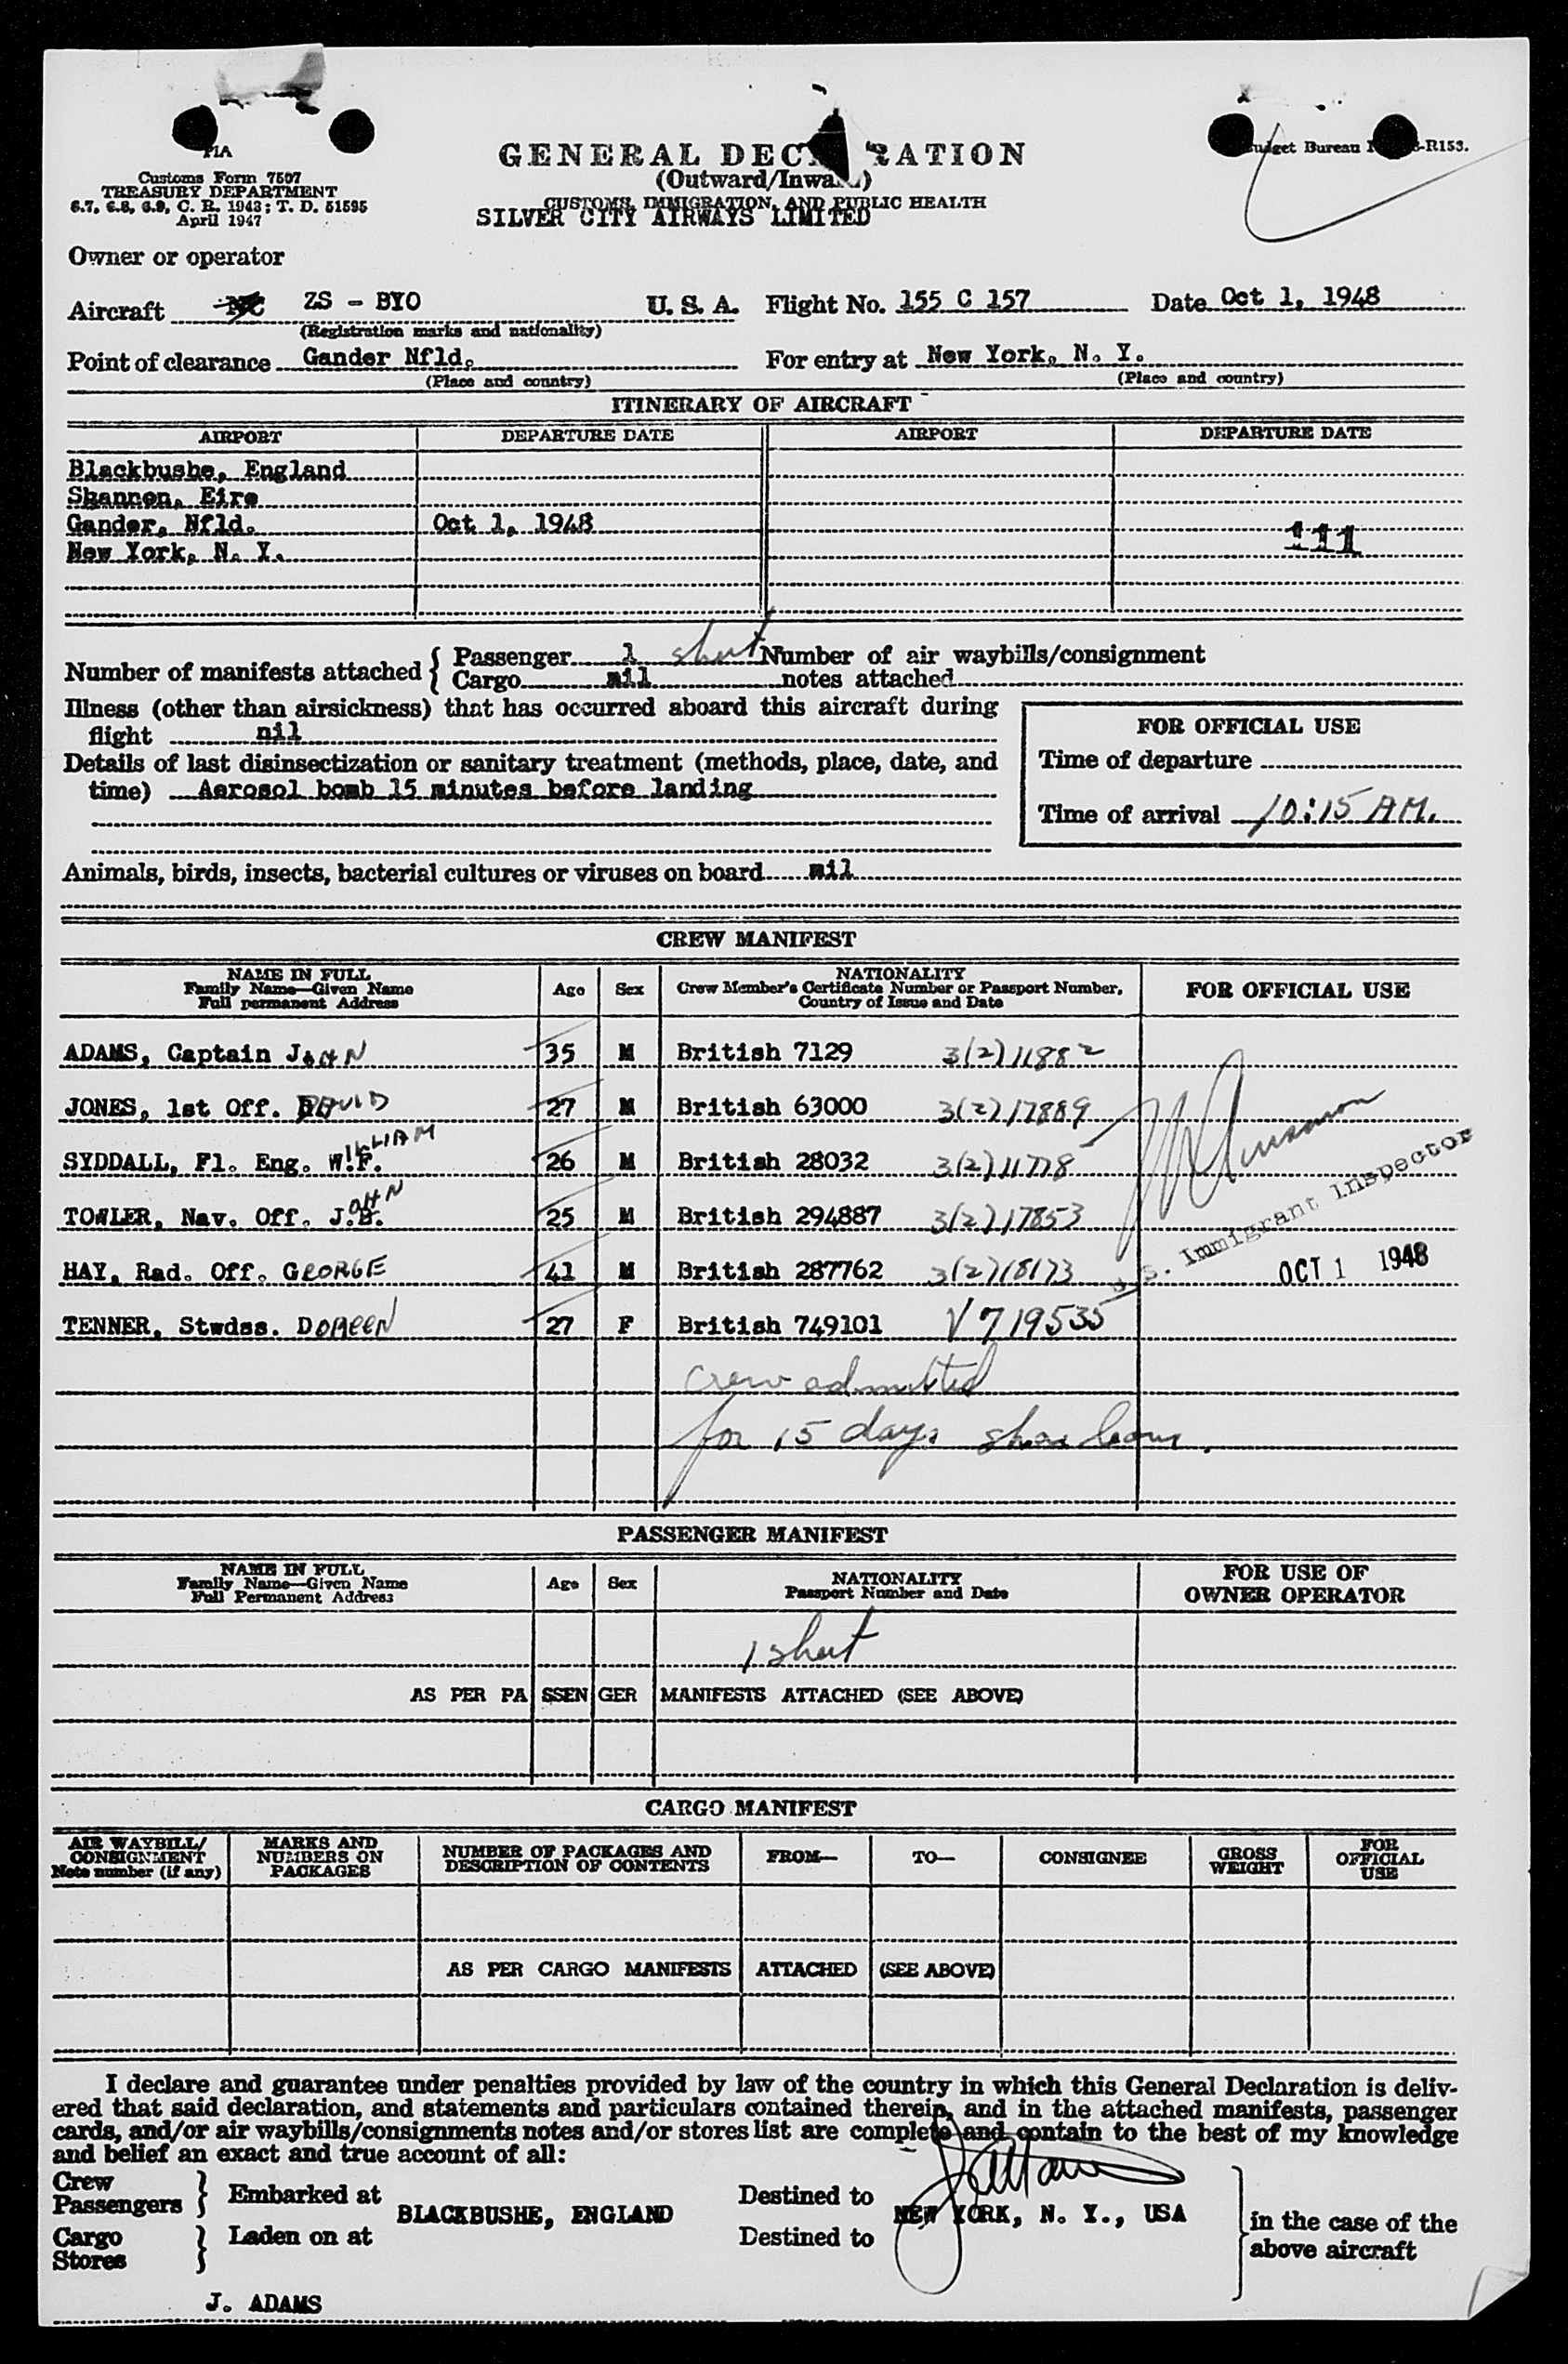 GENERAL DEC RATION
(Outward/Inwa )
CUSTOMS, IMMIGRATION, AND PUBLIC HEALTH
SILVER CITY AIRWAYS LIMITED
FIA
Customs Form 7507
TREASURY DEPARTMENT
6.7, 6.8, 6.9, C. R. 1943; T. D. 51595
April 1947
Budget Bureau -R153.
Owner or operator
Aircraft NC ZS - BYO U. S. A. Flight No. 155 C 157 Date Oct 1, 1948
(Registration marks and nationality)
Point of clearance Gander Nfld. For entry at New York, N. Y.
(Place and country) (Place and country)
ITINERARY OF AIRCRAFT
AIRPORT DEPARTURE DATE AIRPORT DEPARTURE DATE
Blackbushe, England
Shannon, Eire
Gander, Nfld. Oct 1, 1948
New York, N. Y. 111
Number of manifests attached { Passenger 1 sheet Number of air waybills/consignment
Cargo nil notes attached
Illness (other than airsickness) that has occurred aboard this aircraft during
flight nil
Details of last disinsectization or sanitary treatment (methods, place, date, and
time) Aerosol bomb 15 minutes before landing
FOR OFFICIAL USE
Time of departure
Time of arrival 10:15 AM.
Animals, birds, insects, bacterial cultures or viruses on board nil
CREW MANIFEST
NAME IN FULL
Family Name—Given Name
Full permanent Address
Age
Sex
NATIONALITY
Crew Member's Certificate Number or Passport Number,
Country of Issue and Date
FOR OFFICIAL USE
ADAMS, Captain JOHN 35 M British 7129 3(2)11882
JONES, 1st Off. DAVID 27 M British 63000 3(2)17889
SYDDALL, Fl. Eng. WILLIAM F. 26 M British 28032 3(2)11778
TOWLER, Nav. Off. JOHN 25 M British 294887 3(2)17853
HAY, Rad. Off. GEORGE 41 M British 287762 3(2)18173
TENNER, Stwdss. DOREEN 27 F British 749101 V719535
U.S. Immigrant Inspector
OCT 1 1948
crew admitted
for 15 days shore leave.
PASSENGER MANIFEST
NAME IN FULL
Family Name—Given Name
Full Permanent Address
Age
Sex
NATIONALITY
Passport Number and Date
FOR USE OF
OWNER OPERATOR
1 sheet
AS PER PASSENGER MANIFESTS ATTACHED (SEE ABOVE)
CARGO MANIFEST
AIR WAYBILL/
CONSIGNMENT
Note number (if any)
MARKS AND
NUMBERS ON
PACKAGES
NUMBER OF PACKAGES AND
DESCRIPTION OF CONTENTS
FROM—
TO—
CONSIGNEE
GROSS
WEIGHT
FOR
OFFICIAL
USE
AS PER CARGO MANIFESTS ATTACHED (SEE ABOVE)
I declare and guarantee under penalties provided by law of the country in which this General Declaration is deliv-
ered that said declaration, and statements and particulars contained therein, and in the attached manifests, passenger
cards, and/or air waybills/consignments notes and/or stores list are complete and contain to the best of my knowledge
and belief an exact and true account of all:
Crew
Passengers } Embarked at BLACKBUSHE, ENGLAND Destined to NEW YORK, N. Y., USA
Cargo
Stores } Laden on at Destined to
in the case of the
above aircraft
J. ADAMS